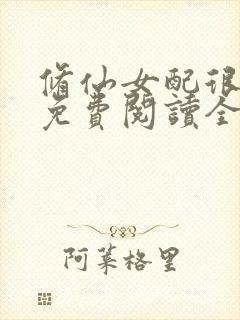 脩仙女配很
免費閱讀全
阿萊格里